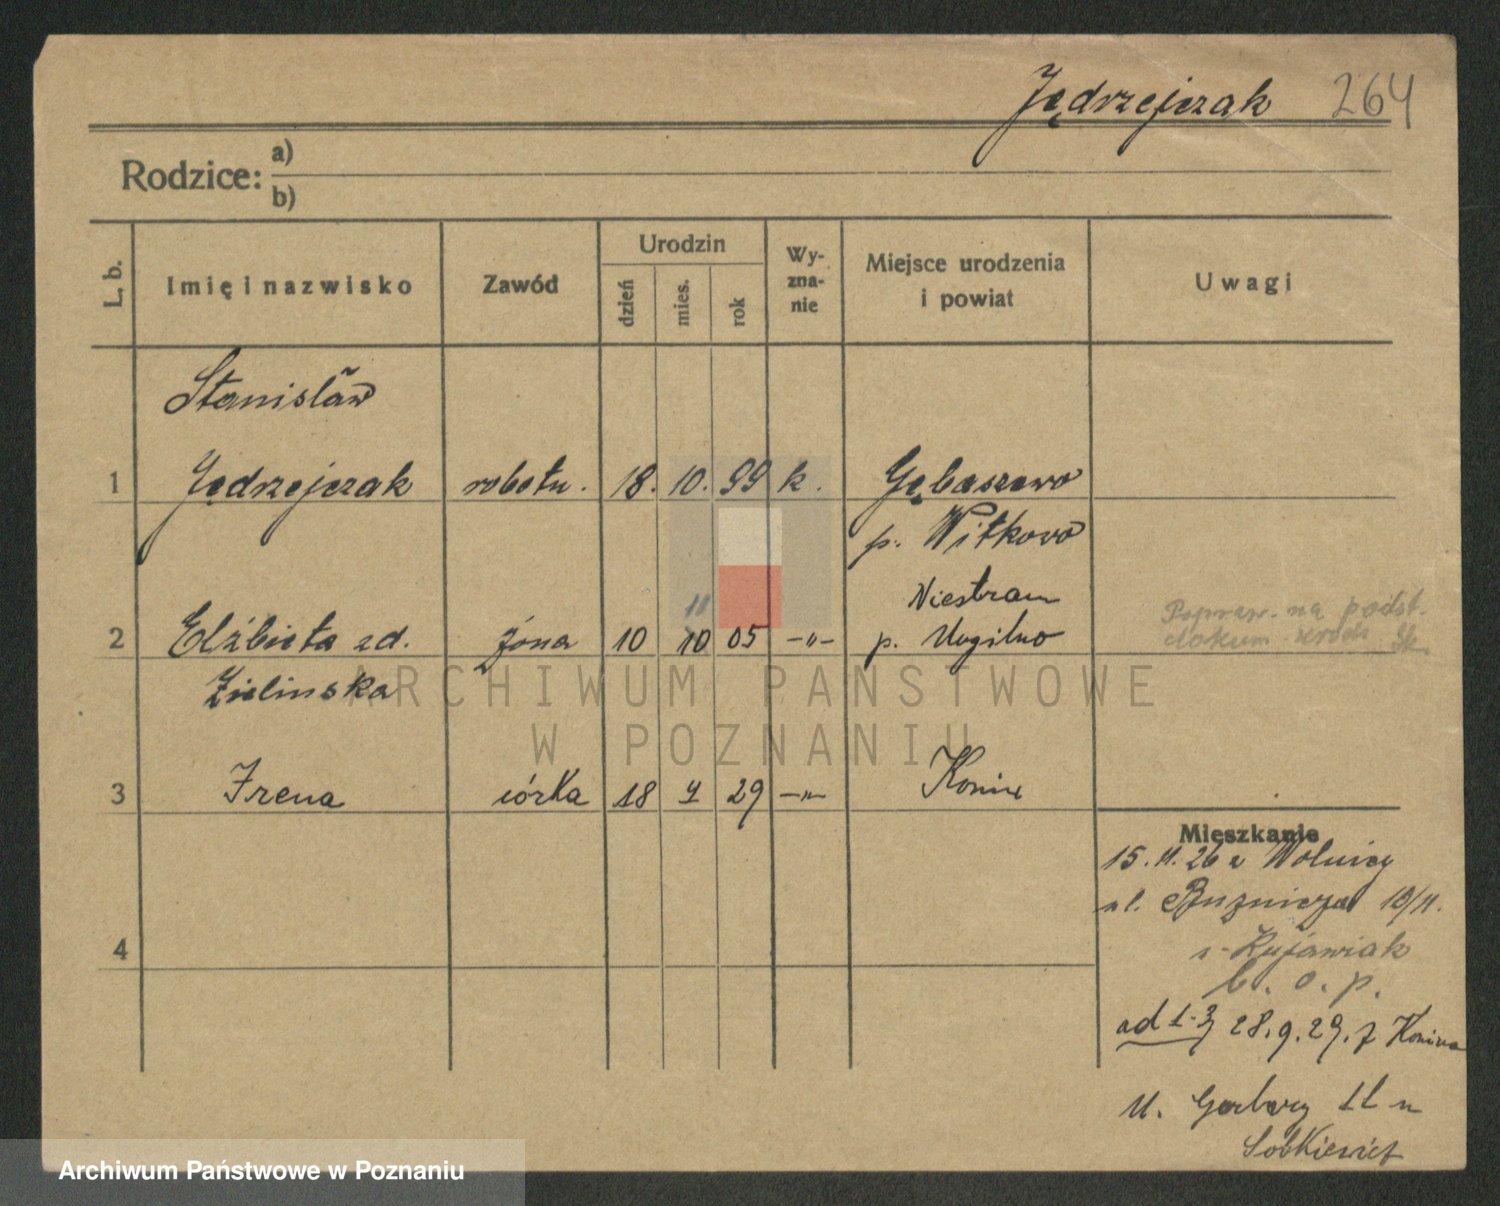 Jędrzejczak 264
Rodzice: a)
b)
L. b. Imię i nazwisko Zawód Urodzin dzień mies. rok Wy-zna-nie Miejsce urodzenia i powiat Uwagi
Stanisław
1 Jędrzejczak robotn. 18. 10. 99 k. Gębaszewo
p. Witkowo
11 Niestran
2 Elżbieta zd. żona 10 10 05 -"- p. Mogilno
Popraw. na podst.
dokum.
Zielinska
ARCHIWUM PAŃSTWOWE
W POZNANIU
3 Irena córka 18 29 -"- Konin
Mieszkanie
15. 11. 26 z Wolnicy
ul. 10/11.
Kujawiak
b. o. p.
4
ad 1-3 28. 9. 29. z Konina
U. Garbary
Sobkiewicz
Archiwum Państwowe w Poznaniu